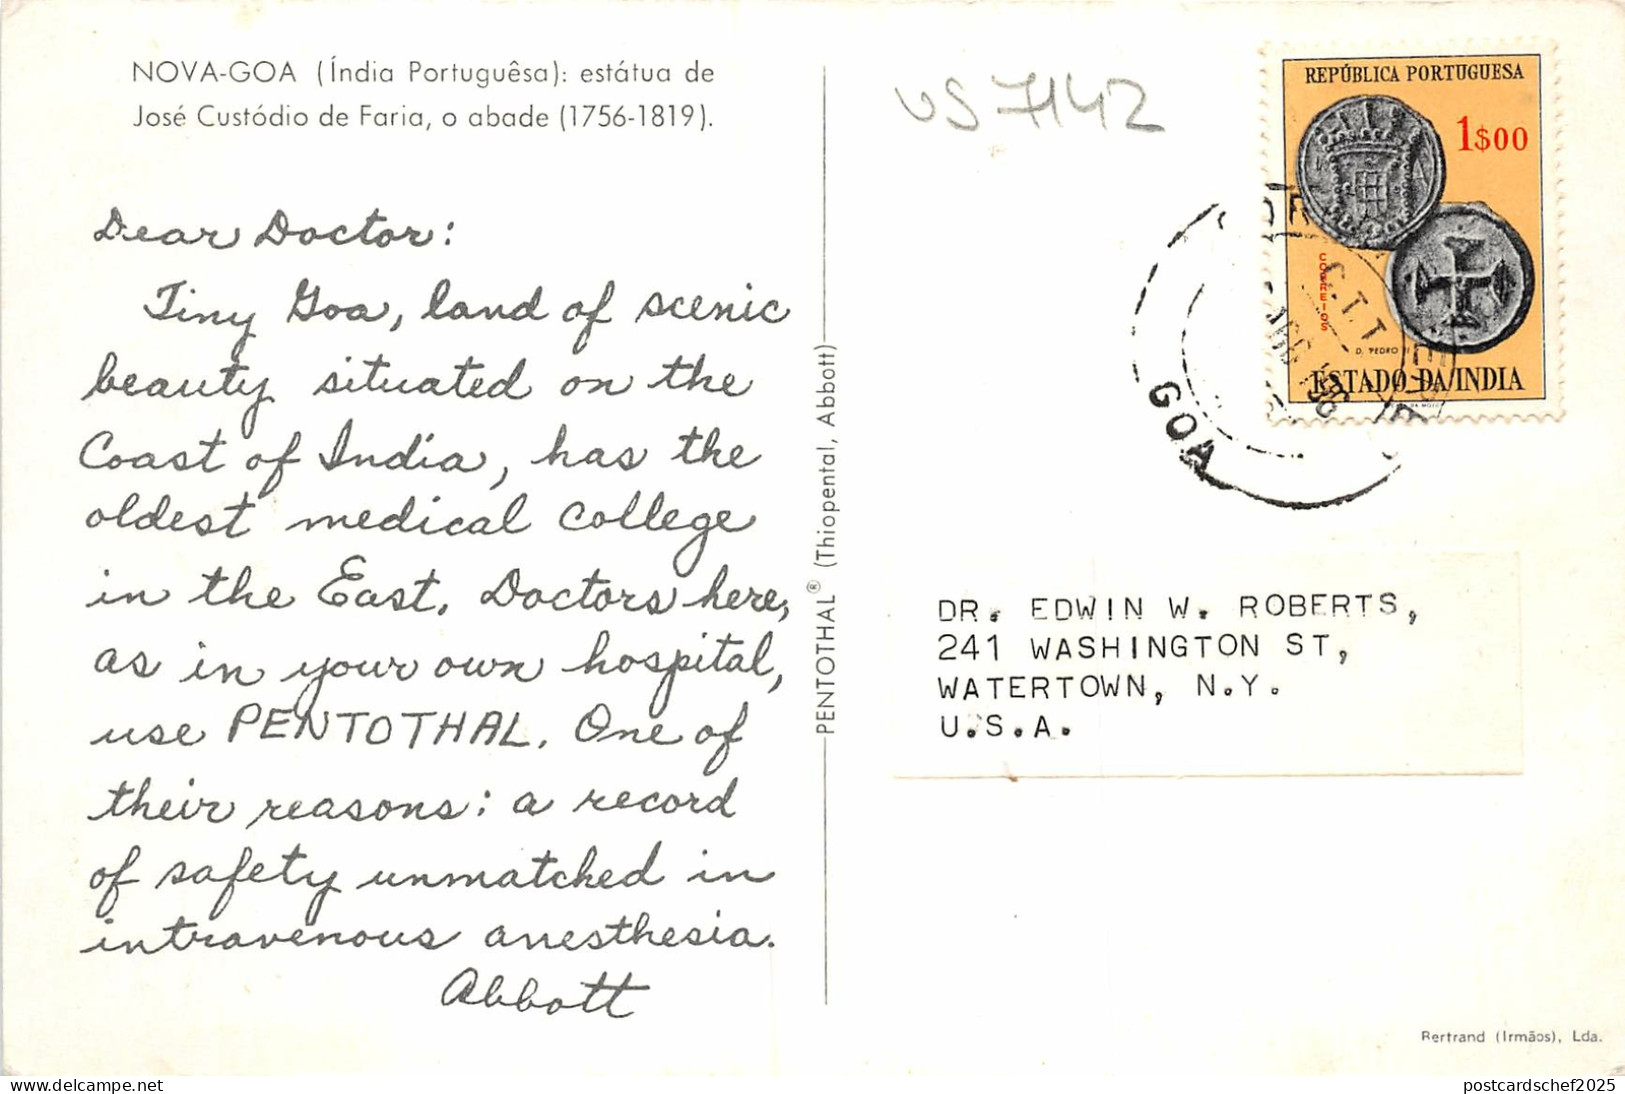 NOVA-GOA (Índia Portuguêsa): estátua de
José Custódio de Faria, o abade (1756-1819).
Dear Doctor:
Tiny Goa, land of scenic
beauty situated on the
Coast of India, has the
oldest medical college
in the East. Doctors here,
as in your own hospital,
use PENTOTHAL. One of
their reasons: a record
of safety unmatched in
intravenous anesthesia.
Abbott
PENTOTHAL® (Thiopental, Abbott)
US 7142
REPÚBLICA PORTUGUESA
1$00
CORREIOS
D. PEDRO II
ESTADO DA INDIA
C.T.T.
GOA
DR. EDWIN W. ROBERTS,
241 WASHINGTON ST,
WATERTOWN, N.Y.
U.S.A.
Bertrand (Irmãos), Lda.
delcampe.net
postcardschef2025